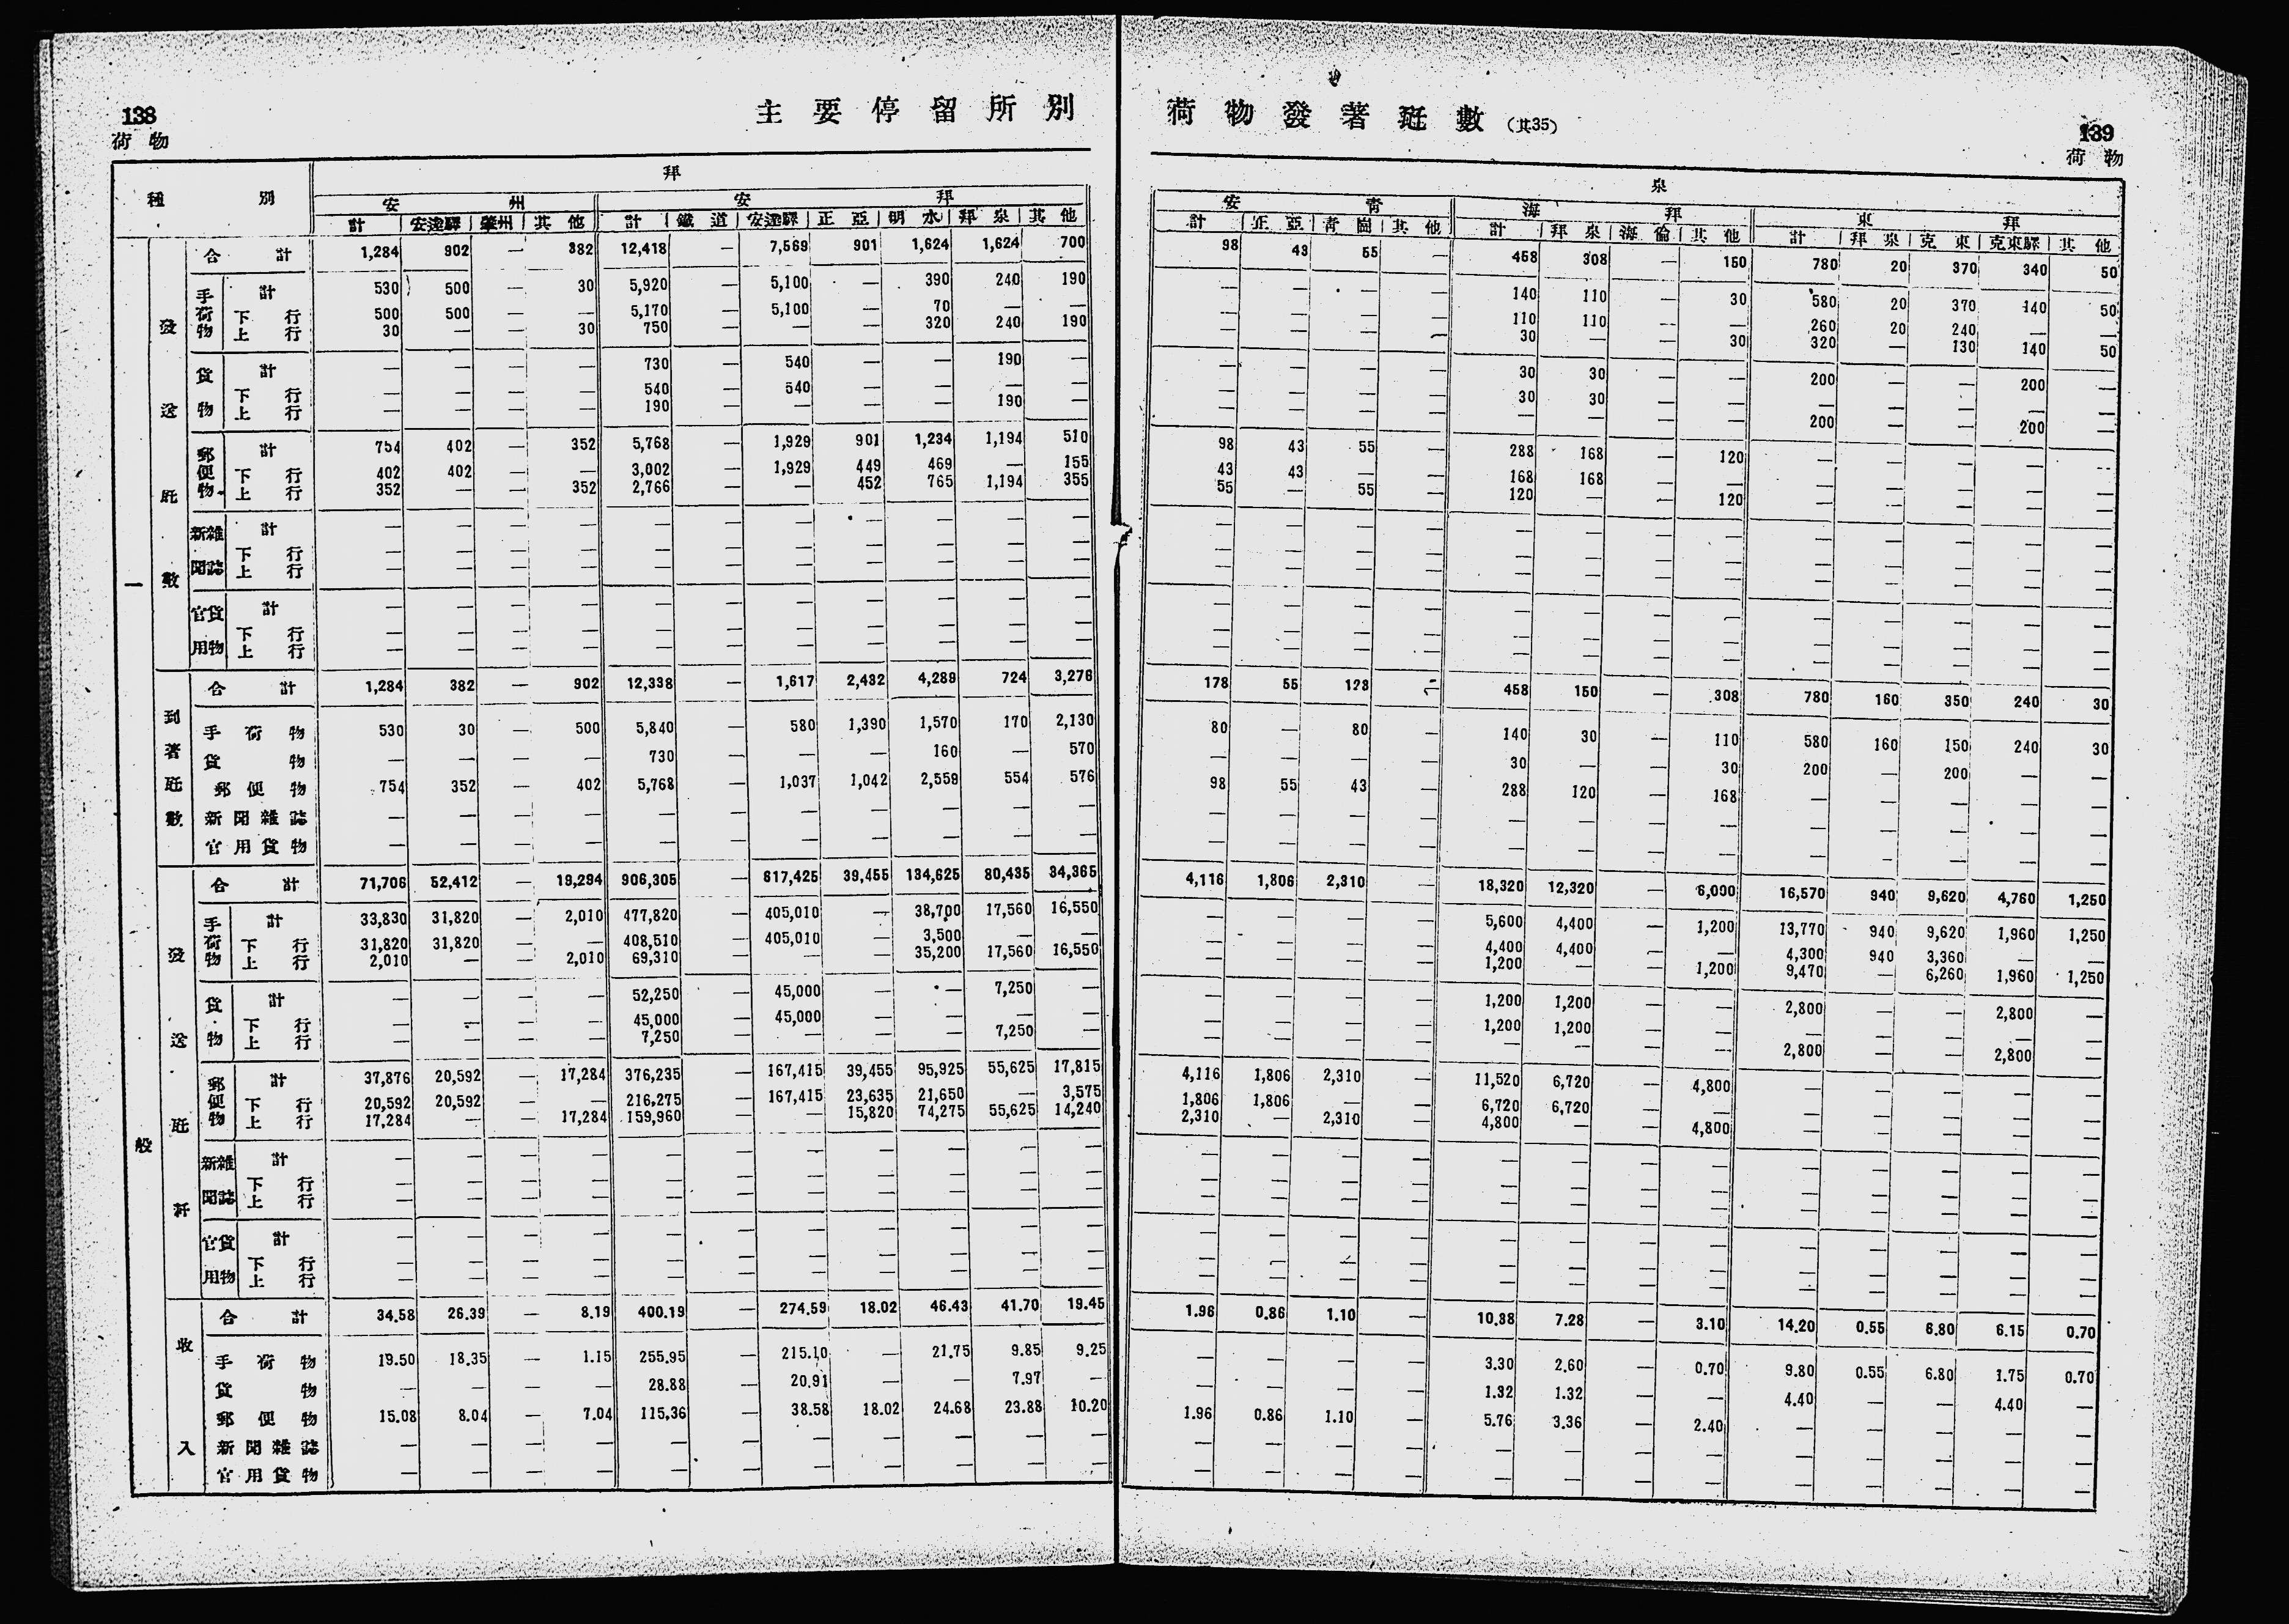 138
荷物
主要停留所別
拜
種別 安州 安拜
計 安達驛 肇州 其他 計 鐵道 安達驛 正亞 明水 拜泉 其他
一般
發送瓩數
合計 1,284 902 — 382 12,418 — 7,569 901 1,624 1,624 700
手荷物 計 530 500 — 30 5,920 — 5,100 — 390 240 190
下行 500 500 — — 5,170 — 5,100 — 70 — —
上行 30 — — 30 750 — — — 320 240 190
貨物 計 — — — — 730 — 540 — — 190 —
下行 — — — — 540 — 540 — — — —
上行 — — — — 190 — — — — 190 —
郵便物 計 754 402 — 352 5,768 — 1,929 901 1,234 1,194 510
下行 402 402 — — 3,002 — 1,929 449 469 — 155
上行 352 — — 352 2,766 — — 452 765 1,194 355
新聞雜誌 計 — — — — — — — — — — —
下行 — — — — — — — — — — —
上行 — — — — — — — — — — —
官用貨物 計 — — — — — — — — — — —
下行 — — — — — — — — — — —
上行 — — — — — — — — — — —
到著瓩數
合計 1,284 382 — 902 12,338 — 1,617 2,432 4,289 724 3,276
手荷物 530 30 — 500 5,840 — 580 1,390 1,570 170 2,130
貨物 — — — — 730 — — — 160 — 570
郵便物 754 352 — 402 5,768 — 1,037 1,042 2,559 554 576
新聞雜誌 — — — — — — — — — — —
官用貨物 — — — — — — — — — — —
發送瓩粁
合計 71,706 52,412 — 19,294 906,305 — 617,425 39,455 134,625 80,435 34,365
手荷物 計 33,830 31,820 — 2,010 477,820 — 405,010 — 38,700 17,560 16,550
下行 31,820 31,820 — — 408,510 — 405,010 — 3,500 — —
上行 2,010 — — 2,010 69,310 — — — 35,200 17,560 16,550
貨物 計 — — — — 52,250 — 45,000 — — 7,250 —
下行 — — — — 45,000 — 45,000 — — — —
上行 — — — — 7,250 — — — — 7,250 —
郵便物 計 37,876 20,592 — 17,284 376,235 — 167,415 39,455 95,925 55,625 17,815
下行 20,592 20,592 — — 216,275 — 167,415 23,635 21,650 — 3,575
上行 17,284 — — 17,284 159,960 — — 15,820 74,275 55,625 14,240
新聞雜誌 計 — — — — — — — — — — —
下行 — — — — — — — — — — —
上行 — — — — — — — — — — —
官用貨物 計 — — — — — — — — — — —
下行 — — — — — — — — — — —
上行 — — — — — — — — — — —
收入
合計 34.58 26.39 — 8.19 400.19 — 274.59 18.02 46.43 41.70 19.45
手荷物 19.50 18.35 — 1.15 255.95 — 215.10 — 21.75 9.85 9.25
貨物 — — — — 28.88 — 20.91 — — 7.97 —
郵便物 15.08 8.04 — 7.04 115.36 — 38.58 18.02 24.68 23.88 10.20
新聞雜誌 — — — — — — — — — — —
官用貨物 — — — — — — — — — — —
荷物發著瓩數(其35)
139
荷物
泉
安青 海拜 東拜
計 正亞 青崗 其他 計 拜泉 海倫 其他 計 拜泉 克東 克東驛 其他
98 43 55 — 458 308 — 150 780 20 370 340 50
— — — — 140 110 — 30 580 20 370 140 50
— — — — 110 110 — — 260 20 240 — —
— — — — 30 — — 30 320 — 130 140 50
— — — — 30 30 — — 200 — — 200 —
— — — — 30 30 — — — — — — —
— — — — — — — — 200 — — 200 —
98 43 55 — 288 168 — 120 — — — — —
43 43 — — 168 168 — — — — — — —
55 — 55 — 120 — — 120 — — — — —
— — — — — — — — — — — — —
— — — — — — — — — — — — —
— — — — — — — — — — — — —
— — — — — — — — — — — — —
— — — — — — — — — — — — —
— — — — — — — — — — — — —
178 55 123 — 458 150 — 308 780 160 350 240 30
80 — 80 — 140 30 — 110 580 160 150 240 30
— — — — 30 — — 30 200 — 200 — —
98 55 43 — 288 120 — 168 — — — — —
— — — — — — — — — — — — —
— — — — — — — — — — — — —
4,116 1,806 2,310 — 18,320 12,320 — 6,000 16,570 940 9,620 4,760 1,250
— — — — 5,600 4,400 — 1,200 13,770 940 9,620 1,960 1,250
— — — — 4,400 4,400 — — 4,300 940 3,360 — —
— — — — 1,200 — — 1,200 9,470 — 6,260 1,960 1,250
— — — — 1,200 1,200 — — 2,800 — — 2,800 —
— — — — 1,200 1,200 — — — — — — —
— — — — — — — — 2,800 — — 2,800 —
4,116 1,806 2,310 — 11,520 6,720 — 4,800 — — — — —
1,806 1,806 — — 6,720 6,720 — — — — — — —
2,310 — 2,310 — 4,800 — — 4,800 — — — — —
— — — — — — — — — — — — —
— — — — — — — — — — — — —
— — — — — — — — — — — — —
— — — — — — — — — — — — —
— — — — — — — — — — — — —
— — — — — — — — — — — — —
1.96 0.86 1.10 — 10.38 7.28 — 3.10 14.20 0.55 6.80 6.15 0.70
— — — — 3.30 2.60 — 0.70 9.80 0.55 6.80 1.75 0.70
— — — — 1.32 1.32 — — 4.40 — — 4.40 —
1.96 0.86 1.10 — 5.76 3.36 — 2.40 — — — — —
— — — — — — — — — — — — —
— — — — — — — — — — — — —